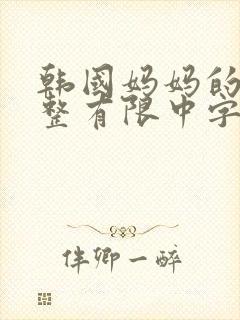 韩国妈妈的
整有限中字
伴卿一醉